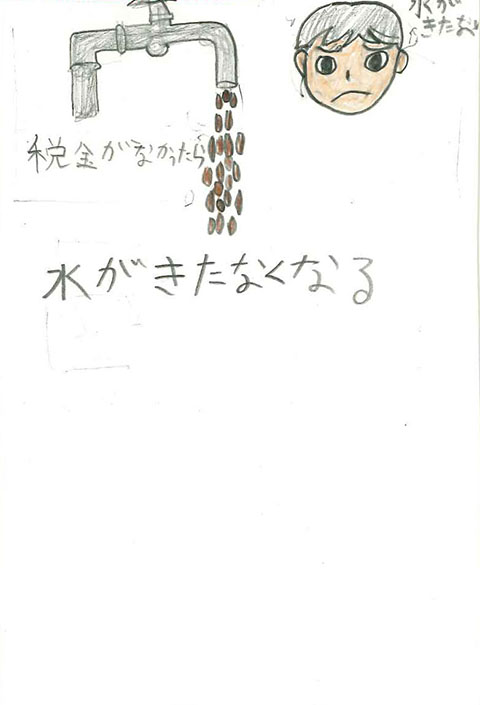 水が
きたない
税金がなかったら
水がきたなくなる